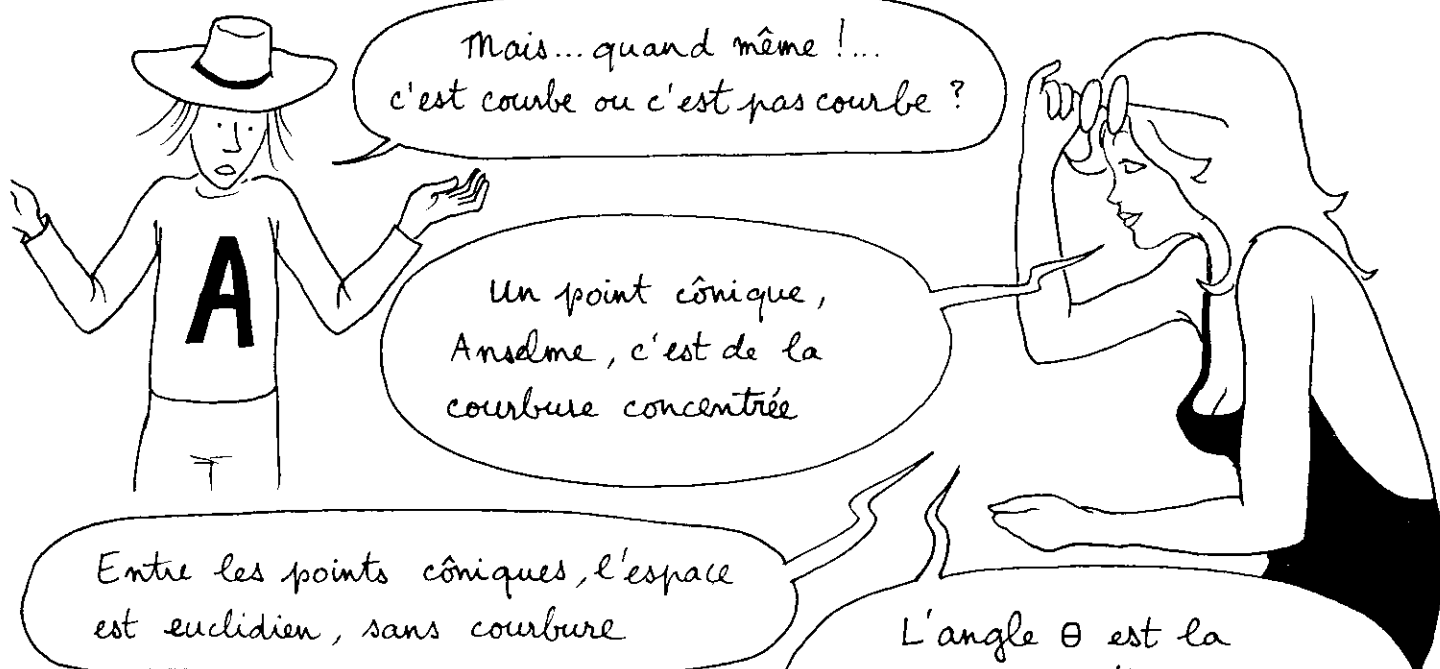 Mais...quand même !...
c'est courbe ou c'est pas courbe ?
A
Un point cônique,
Anselme, c'est de la
courbure concentrée
Entre les points côniques, l'espace
est euclidien, sans courbure
L'angle θ est la